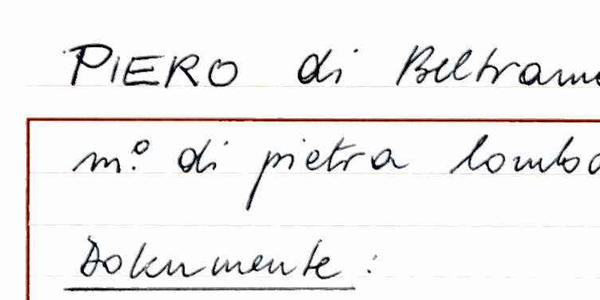 PIERO di Beltrame
m.º di pietra lomba
Dokumente: